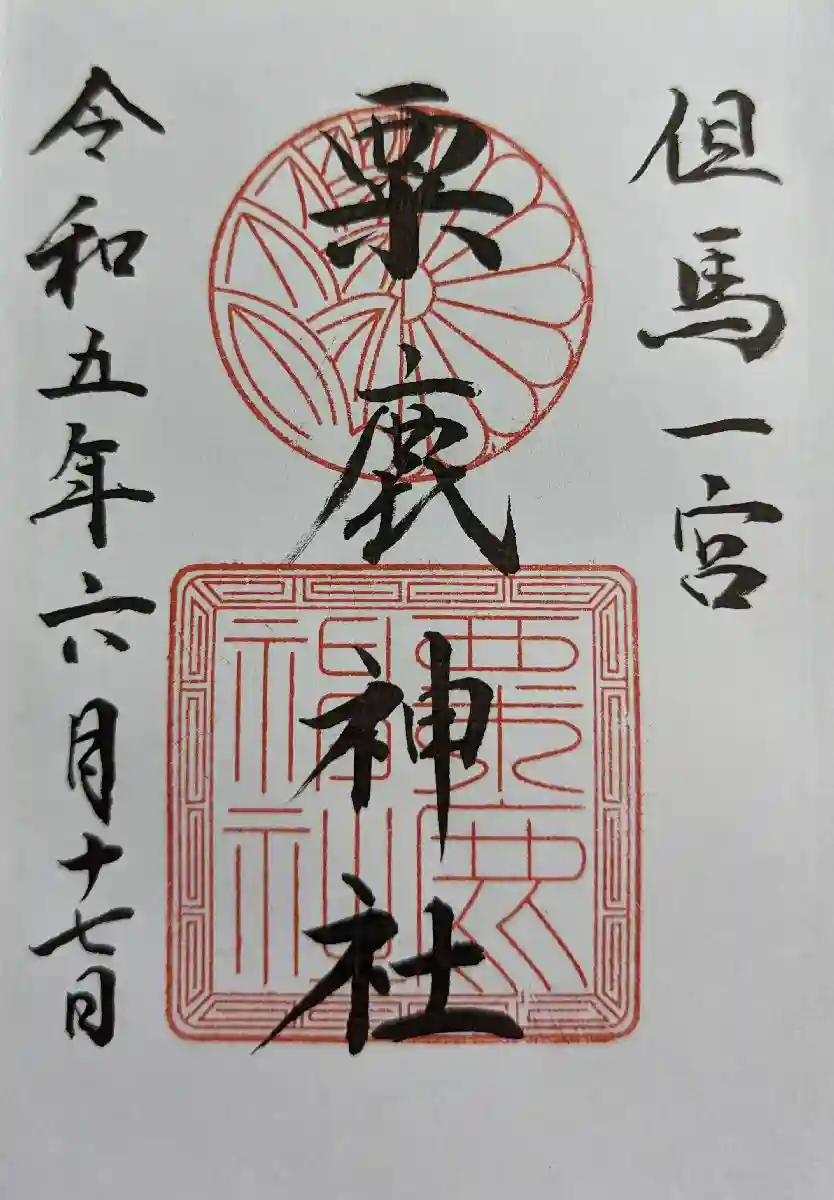 但馬一宮
粟鹿神社
令和五年六月十七日
粟鹿神社